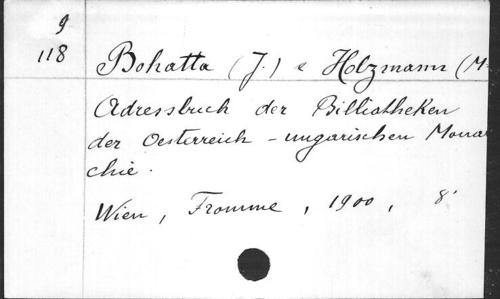 9
118
Bohatta (J.) e Holzmann (M.
Adressbuch der Bibliotheken
der Oesterreich - ungarischen Monar
chie.
Wien, Fromme, 1900, 8°